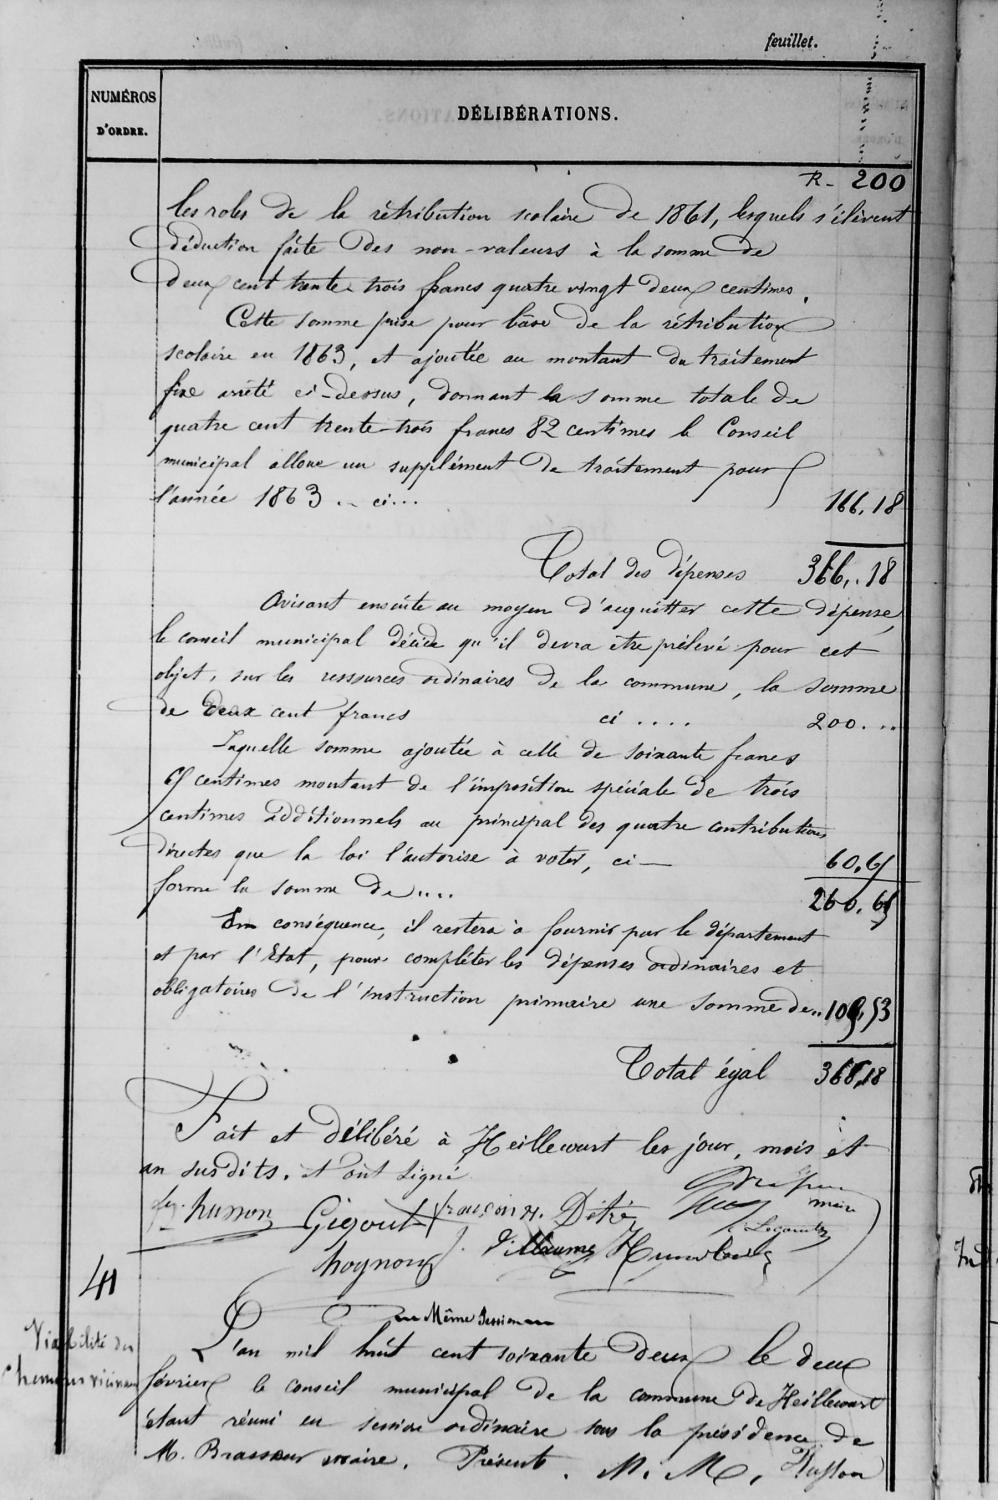 feuillet.
NUMÉROS
D'ORDRE.
DÉLIBÉRATIONS.
R- 200
les roles de la rétribution scolaire de 1861, lesquels s'élèvent
déduction faite des non-valeurs à la somme de
deux cent trente trois francs quatre vingt deux centimes.
Cette somme prise pour base de la rétribution
scolaire en 1863, et ajoutée au montant du traitement
fixe arrêté ci-dessus, donnant la somme totale de
quatre cent trente-trois francs 82 centimes le Conseil
municipal alloue un supplément de traitement pour
l'année 1863 .. ci... 166,18
Total des dépenses 366,.18
Avisant ensuite au moyen d'acquitter cette dépense,
le conseil municipal décide qu'il devra être prélevé pour cet
objet, sur les ressources ordinaires de la commune, la somme
de deux cent francs ci .... 200...
Laquelle somme ajoutée à celle de soixante francs
65 centimes montant de l'imposition spéciale de trois
centimes additionnels au principal des quatre contributions
directes que la loi l'autorise à voter, ci — 60,65
forme la somme de.... 260,65
En conséquence, il restera à fournir par le département
et par l'Etat, pour compléter les dépenses ordinaires et
obligatoires de l'instruction primaire une somme de.. 105,53
Total égal 366,18
Fait et délibéré à Heillecourt les jour, mois et
an susdits. et ont signé
husson Gigout françois N. Ditré maire
hognon J. Villaume
41
Même Session
Viabilité des
Chemins vicinaux
L'an mil huit cent soixante deux le deux
février le conseil municipal de la commune de Heillecourt
étant réuni en session ordinaire sous la présidence de
M. Brasseur maire. Présents. M. M. Husson